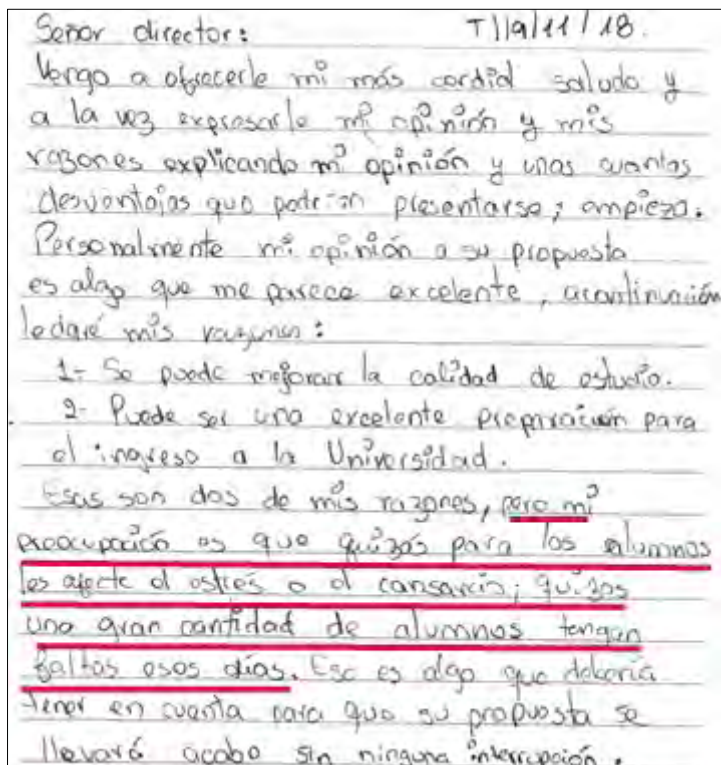 Señor director: T//19/11/18.
Vengo a ofrecerle mi más cordial saludo y
a la vez expresarle mi opinión y mis
razones explicando mi opinión y unas cuantas
desventajas que podrían presentarse; empiezo.
Personalmente mi opinión a su propuesta
es algo que me parece excelente, acontinuación
ledaré mis razones:
1- Se puede mejorar la calidad de estudio.
2- Puede ser una excelente preparación para
el ingreso a la Universidad.
Esas son dos de mis razones, pero mi
preocupación es que quizás para los alumnos
les afecte el estrés o el cansancio; quizas
una gran cantidad de alumnos tengan
faltas esos días. Eso es algo que debería
tener en cuenta para que su propuesta se
llevará acabo sin ninguna interrupción.